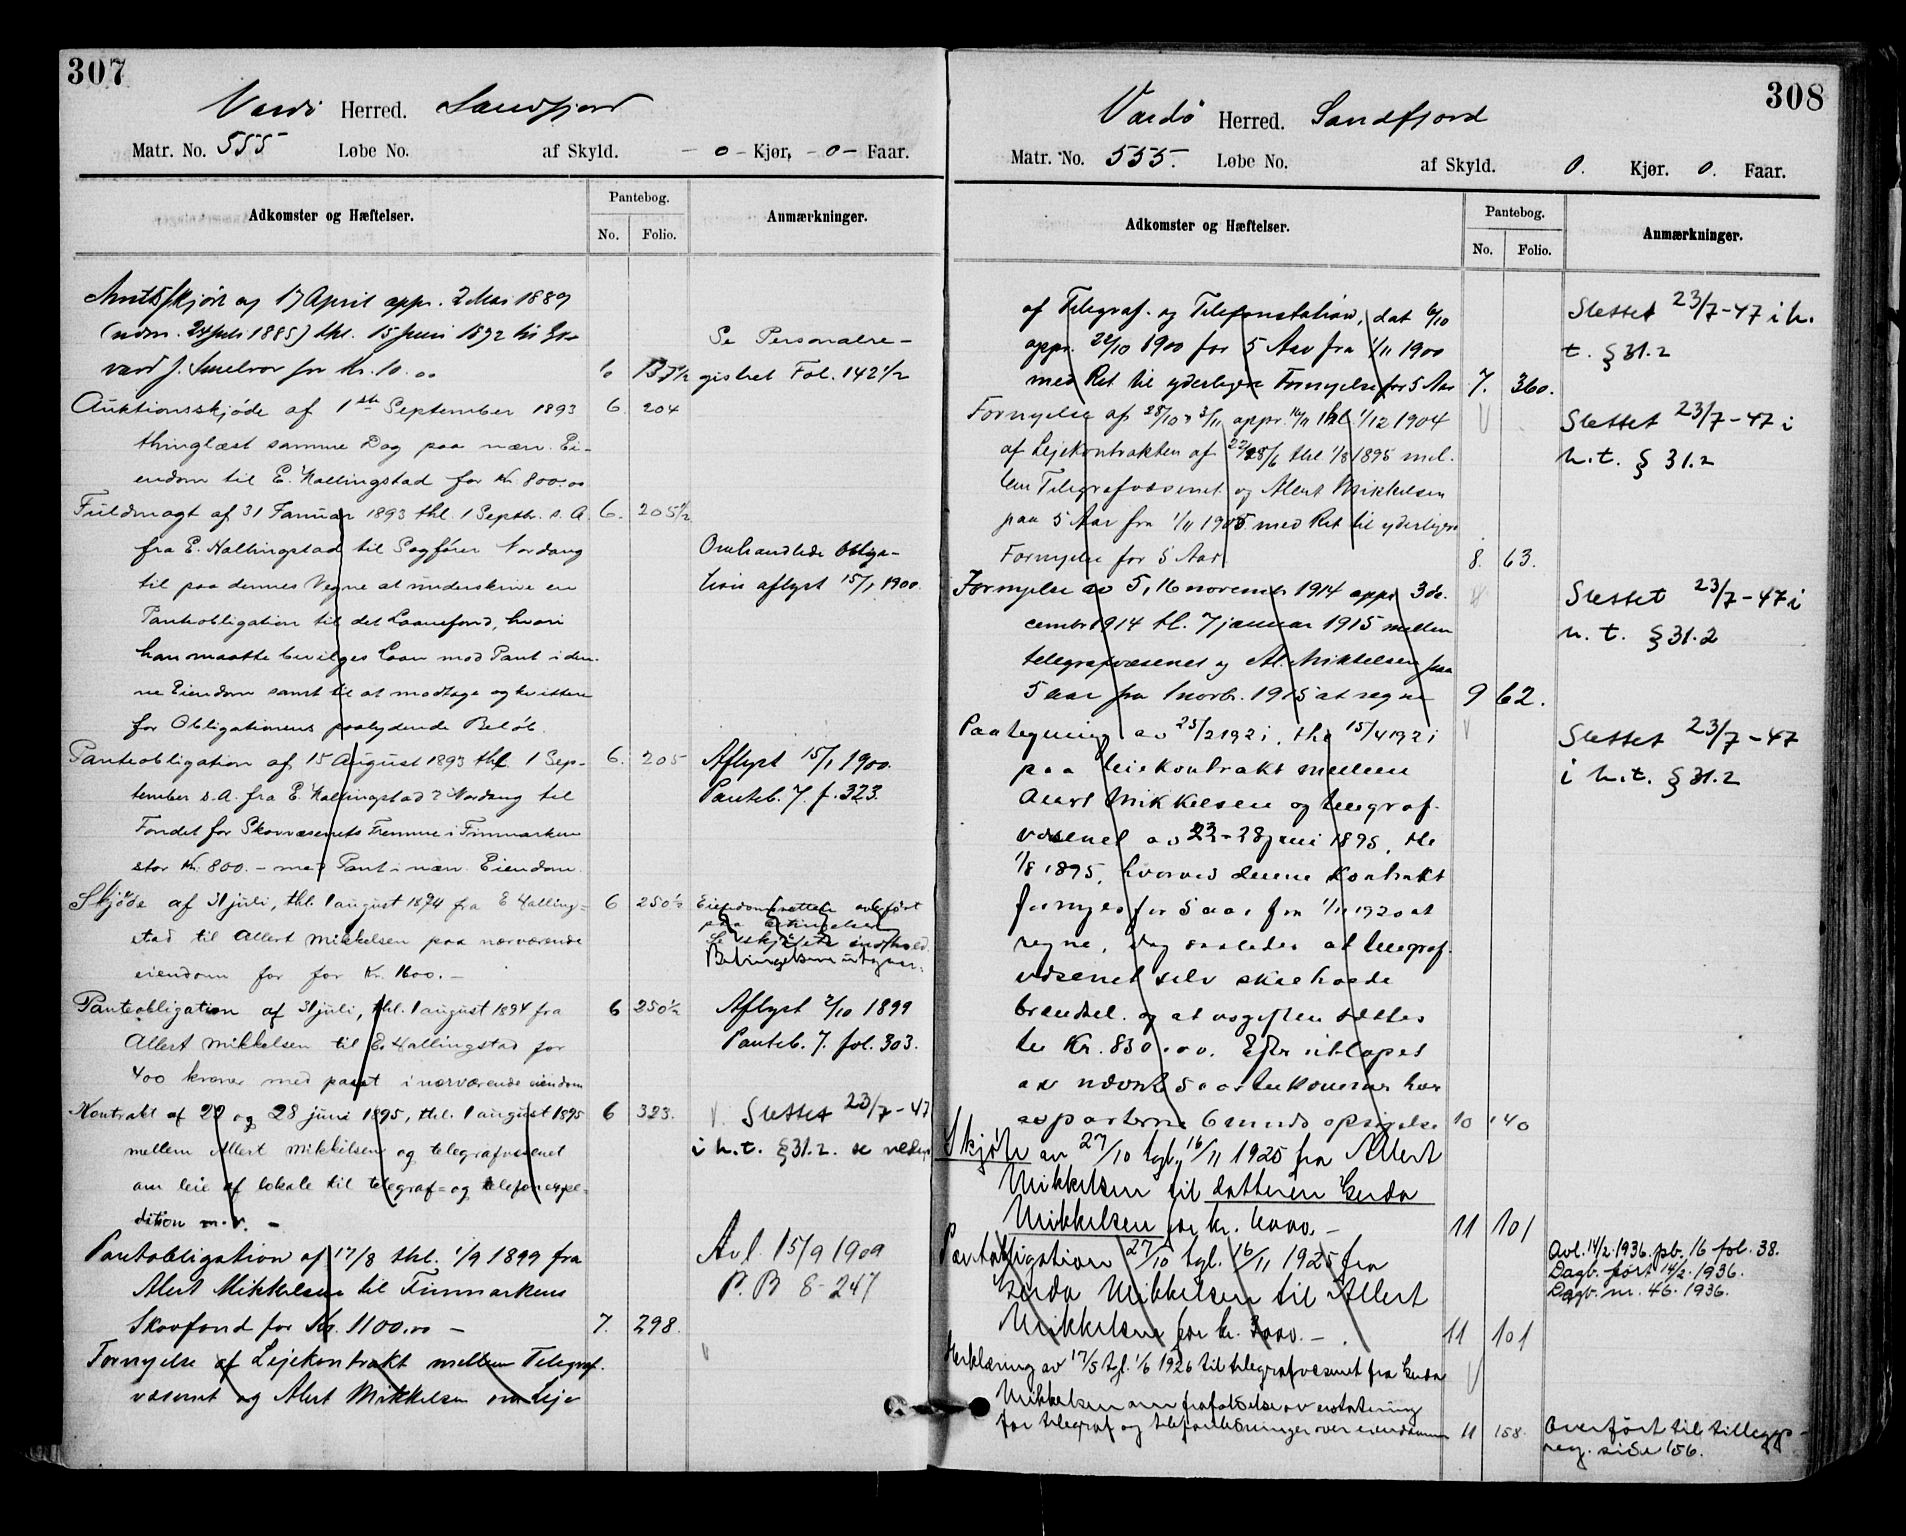 307
Vardö Herred. Sandfjord
Matr. No. 555 Løbe No. af Skyld. - 0 - Kjør, - 0 - Faar.
Adkomster og Hæftelser. Pantebog. Anmærkninger.
No. Folio.
Amtsskjøde af 17 April appr. 2 Mai 1889
(udm. 24 Juli 1885) thl. 15 Juni 1892 til Ed-
vard J. Smelror for Kr. 10.00 6 137½
Se Personalre-
gistret Fol. 142½
Auktionsskjøde af 1ste September 1893 6. 204
thinglæst samme Dag paa nærv. Ei-
endom til E. Hallingstad for Kr. 800.00
Fuldmagt af 31 Januar 1893 thl. 1 Septbr. s. A. 6. 205½
fra E. Hallingstad til Sagfører Nordang
til paa dennes Vegne at underskrive en
Panteobligation til det Laanefond, hvori
han maatte bevilges Laan mod Pant i den-
ne Eiendom samt til at modtage og kvittere
for Obligationens paalydende Beløb.
Omhandlede Obliga-
tion aflyst 15/1 1900.
Panteobligation af 15 August 1893 thl. 1 Sep- 6. 205
tember s. A. fra E. Hallingstad v/ Nordang til
Fondet for Skovvæsenets Fremme i Finmarken
stor Kr. 800. – med Pant i nærv. Eiendom.
Aflyst 15/1 1900.
Panteb. 7. f. 323.
Skjøde af 31 juli, thl. 1 august 1894 fra E Halling= 6 250½
stad til Allert Mikkelsen paa nærværende
eiendom for for Kr. 1600. –
Eiendomsretten overført
paa betingelser
Se skjødets indhold.
Betingelserne utgaar.
Panteobligation af 31 juli, thl. 1 august 1894 fra 6 250½
Allert Mikkelsen til E. Hallingstad for
400 kroner med pant i nærværende eiendom
Aflyst 2/10 1899
Panteb. 7. fol. 303.
Kontrakt af 22 og 28 juni 1895, thl. 1 august 1895 6 323.
mellem Allert Mikkelsen og telegrafvæsenet
om leie af lokale til telegraf= og telefonexpe=
dition m.v. –
Slettet 23/7-47
i h.t. §31.2. se
Pantobligation af 17/8 thl. 1/9 1899 fra
Alert Mikkelsen til Finmarkens
Skovfond for Kr. 1100.00 – 7. 298.
Avl. 15/9 1909
P. B 8-247
Fornyelse af Lejekontrakt mellem Telegraf.
væsenet og Alert Mikkelsen om Leje
308
Vardö Herred. Sandfjord
Matr. No. 555. Løbe No. af Skyld. 0. Kjør. 0. Faar.
Adkomster og Hæftelser. Pantebog. Anmærkninger.
No. Folio.
af Telegraf- og Telefonstation, dat 6/10
appr. 26/10 1900 for 5 Aar fra 1/11 1900
med Ret til yderligere Fornyelse for 5 Aar 7. 360.
Slettet 23/7-47 i h.
t. §31.2
Fornyelse af 28/10 3/11 appr. 16/11 thl. 1/12 1904
af Lejekontrakten af 22/28/6 thl. 1/8 1895 mel.
lem Telegrafvæsenet og Alert Mikkelsen
paa 5 Aar fra 1/11 1905 med Ret til yderligere
Fornyelse for 5 Aar 8. 63.
Slettet 23/7-47 i
h.t. § 31.2
Fornyelse av 5, 16 november 1914 appr 3 de.
cembr 1914 tl. 7 januar 1915 mellem
telegrafvæsenet og Al. Mikkelsen paa
5 aar fra 1 novbr. 1915 at regne 9 62.
Slettet 23/7-47 i
h. t. §31.2
Paategning av 25/2 1921, thl 15/4 1921
paa leiekontrakt mellem
Alert Mikkelsen og telegraf-
væsenet av 22-28 juni 1895, thl
1/8 1895, hvorved denne kontrakt
fornyes for 5 aar fra 1/11 1920 at
regne, dog saaledes at telegraf-
væsenet selv skal holde
brændsel og at avgiften sættes
til Kr. 830.00. Efter utløpet
av nævnte 5 aar leiekontrakt har
av parterne 6 mnds opsigelse 10 140
Slettet 23/7-47
i h.t. §31.2
Skjöte av 27/10 tgl. 16/11 1925 fra Allert
Mikkelsen til datteren Gerda
Mikkelsen for kr. 4000.- 11 101
Pantobligation 27/10 tgl. 16/11 1925 fra
Gerda Mikkelsen til Allert
Mikkelsen for kr. 3000. - 11 101
Avl. 14/2 1936. pb. 16 fol. 38.
Dagb. ført 14/2. 1936.
Dagb. nr. 46. 1936.
Erklæring av 17/5 tgl. 1/6 1926 til telegrafvæsenet fra Gerda
Mikkelsen om frafaldelse av erstatning
for telegraf og telefonledninger over eiendommen 11 158.
Overført til tilleggs-
reg. side 156.